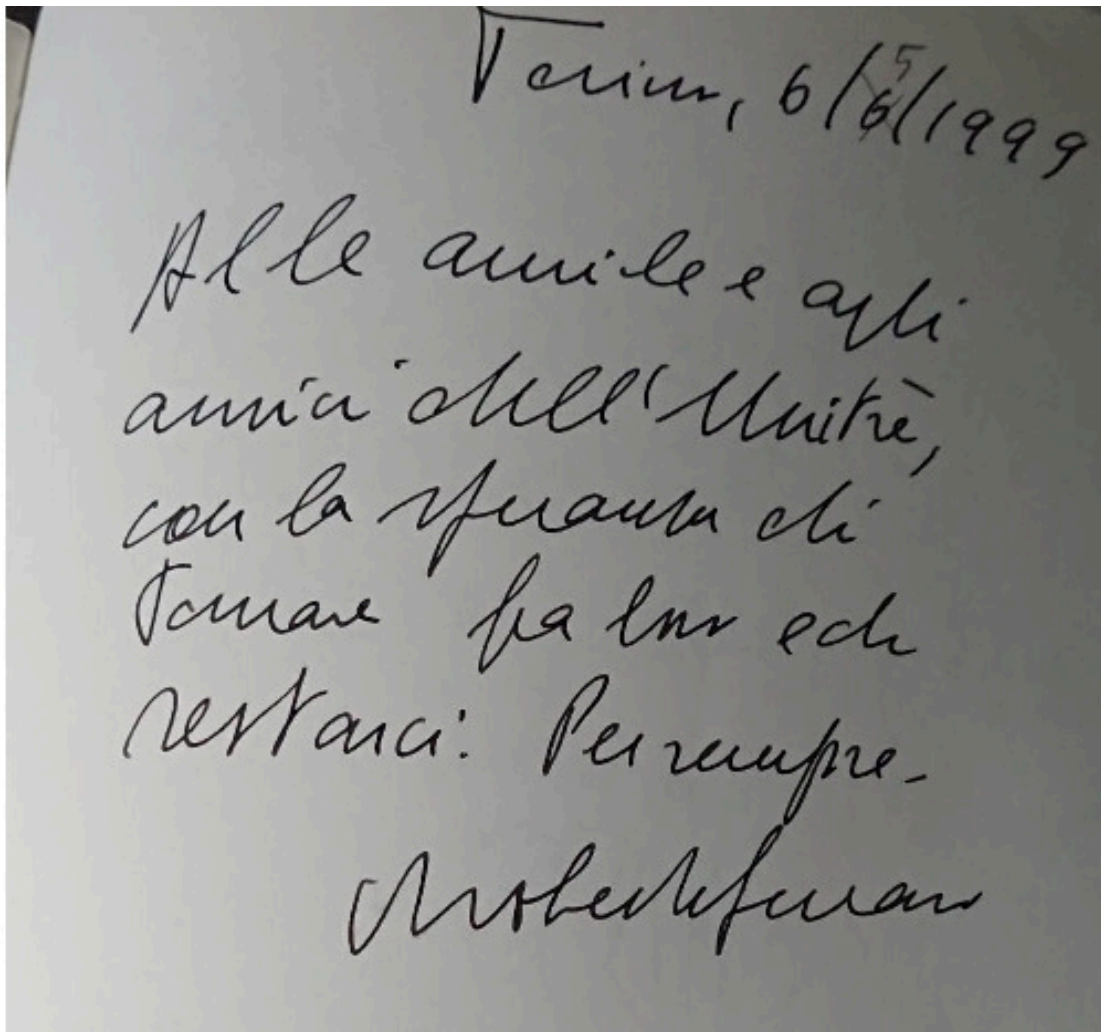 Torino, 6/5/1999
Alle amiche e agli
amici dell'Unitrè,
con la speranza di
tornare fra loro e di
restarci. Per sempre.